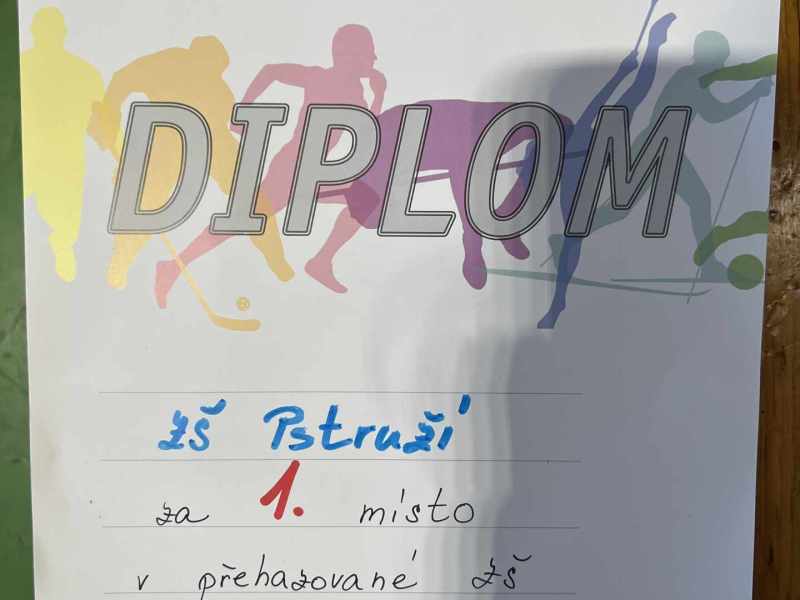 DIPLOM
ZŠ Pstruží
za 1. místo
v přehazované ZŠ